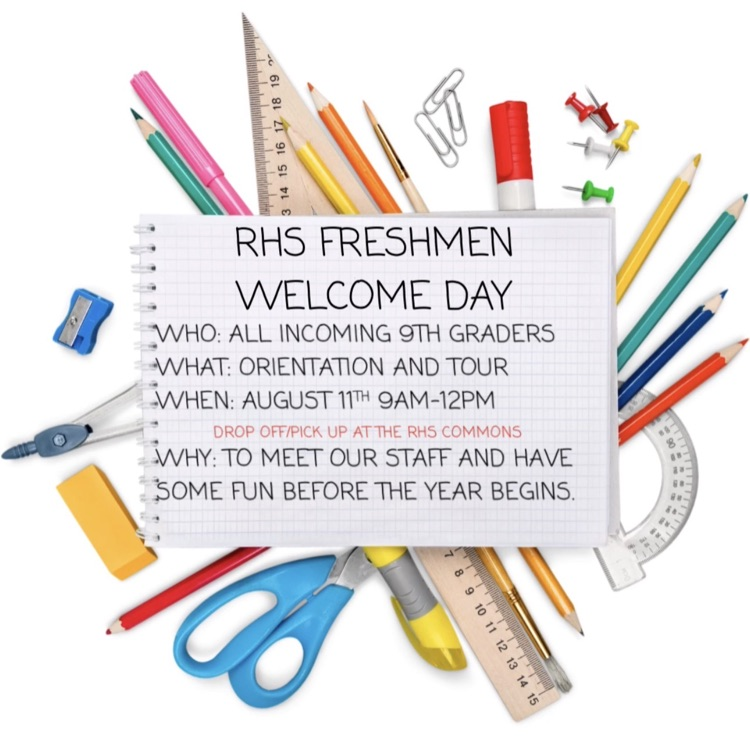 RHS FRESHMEN
WELCOME DAY
WHO: ALL INCOMING 9TH GRADERS
WHAT: ORIENTATION AND TOUR
WHEN: AUGUST 11TH 9AM-12PM
DROP OFF/PICK UP AT THE RHS COMMONS
WHY: TO MEET OUR STAFF AND HAVE
SOME FUN BEFORE THE YEAR BEGINS.
7 8 9 10 11 12 13 14 15